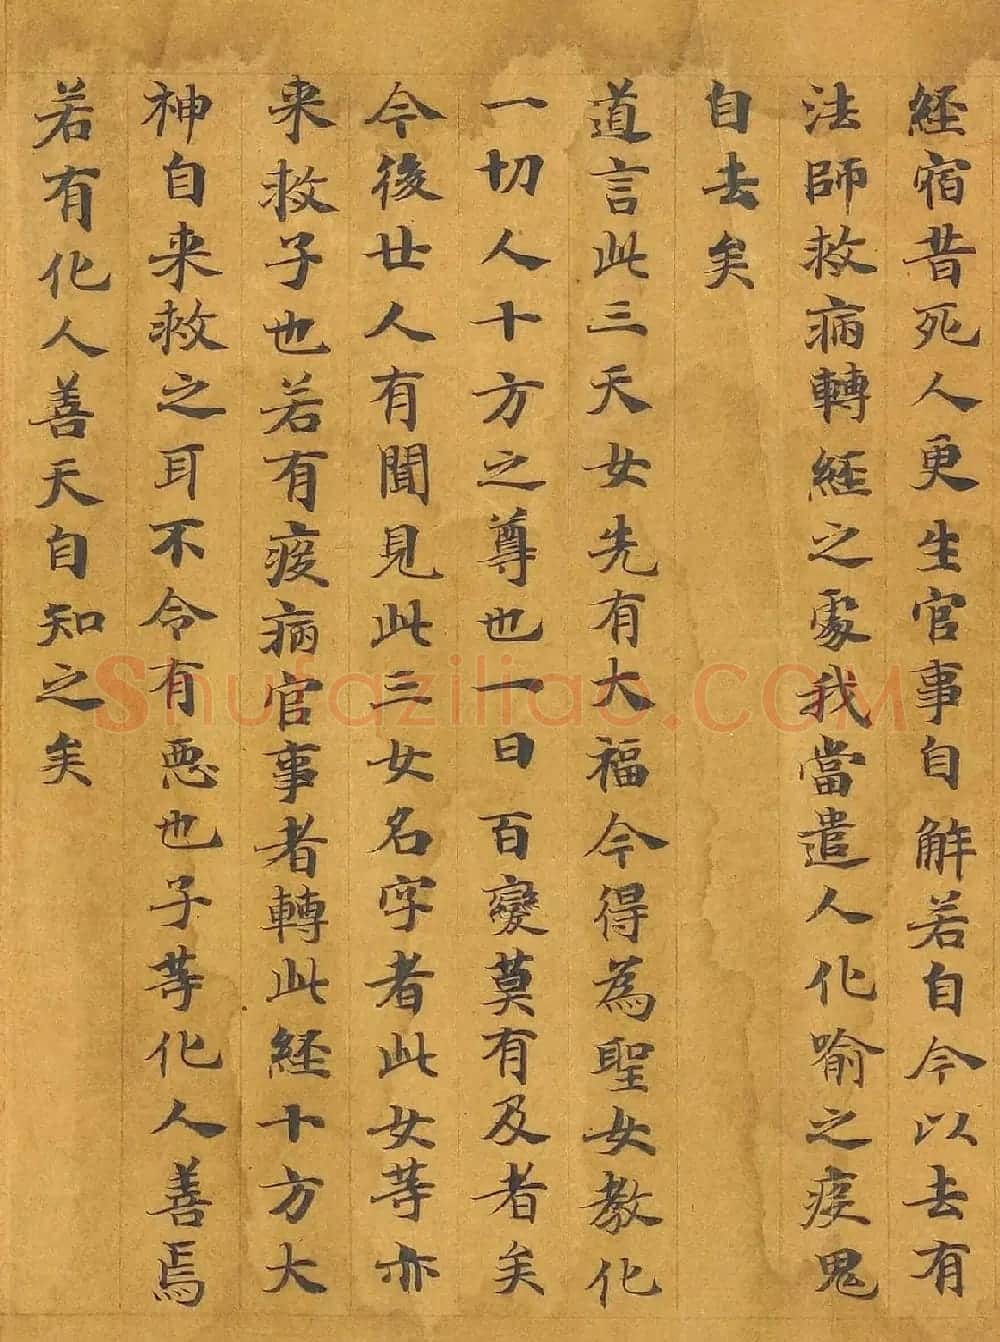 経宿昔死人更生官事自解若自今以去有
法師救病轉経之處我當遣人化喻之疾鬼
自去矣
道言此三天女先有大福今得為聖女教化
一切人十方之尊也一日百變莫有及者矣
今後廿人有聞見此三女名字者此女等亦
来救子也若有疾病官事者轉此経十方大
神自来救之耳不令有惡也子等化人善焉
若有化人善天自知之矣
Shufaziliao.COM